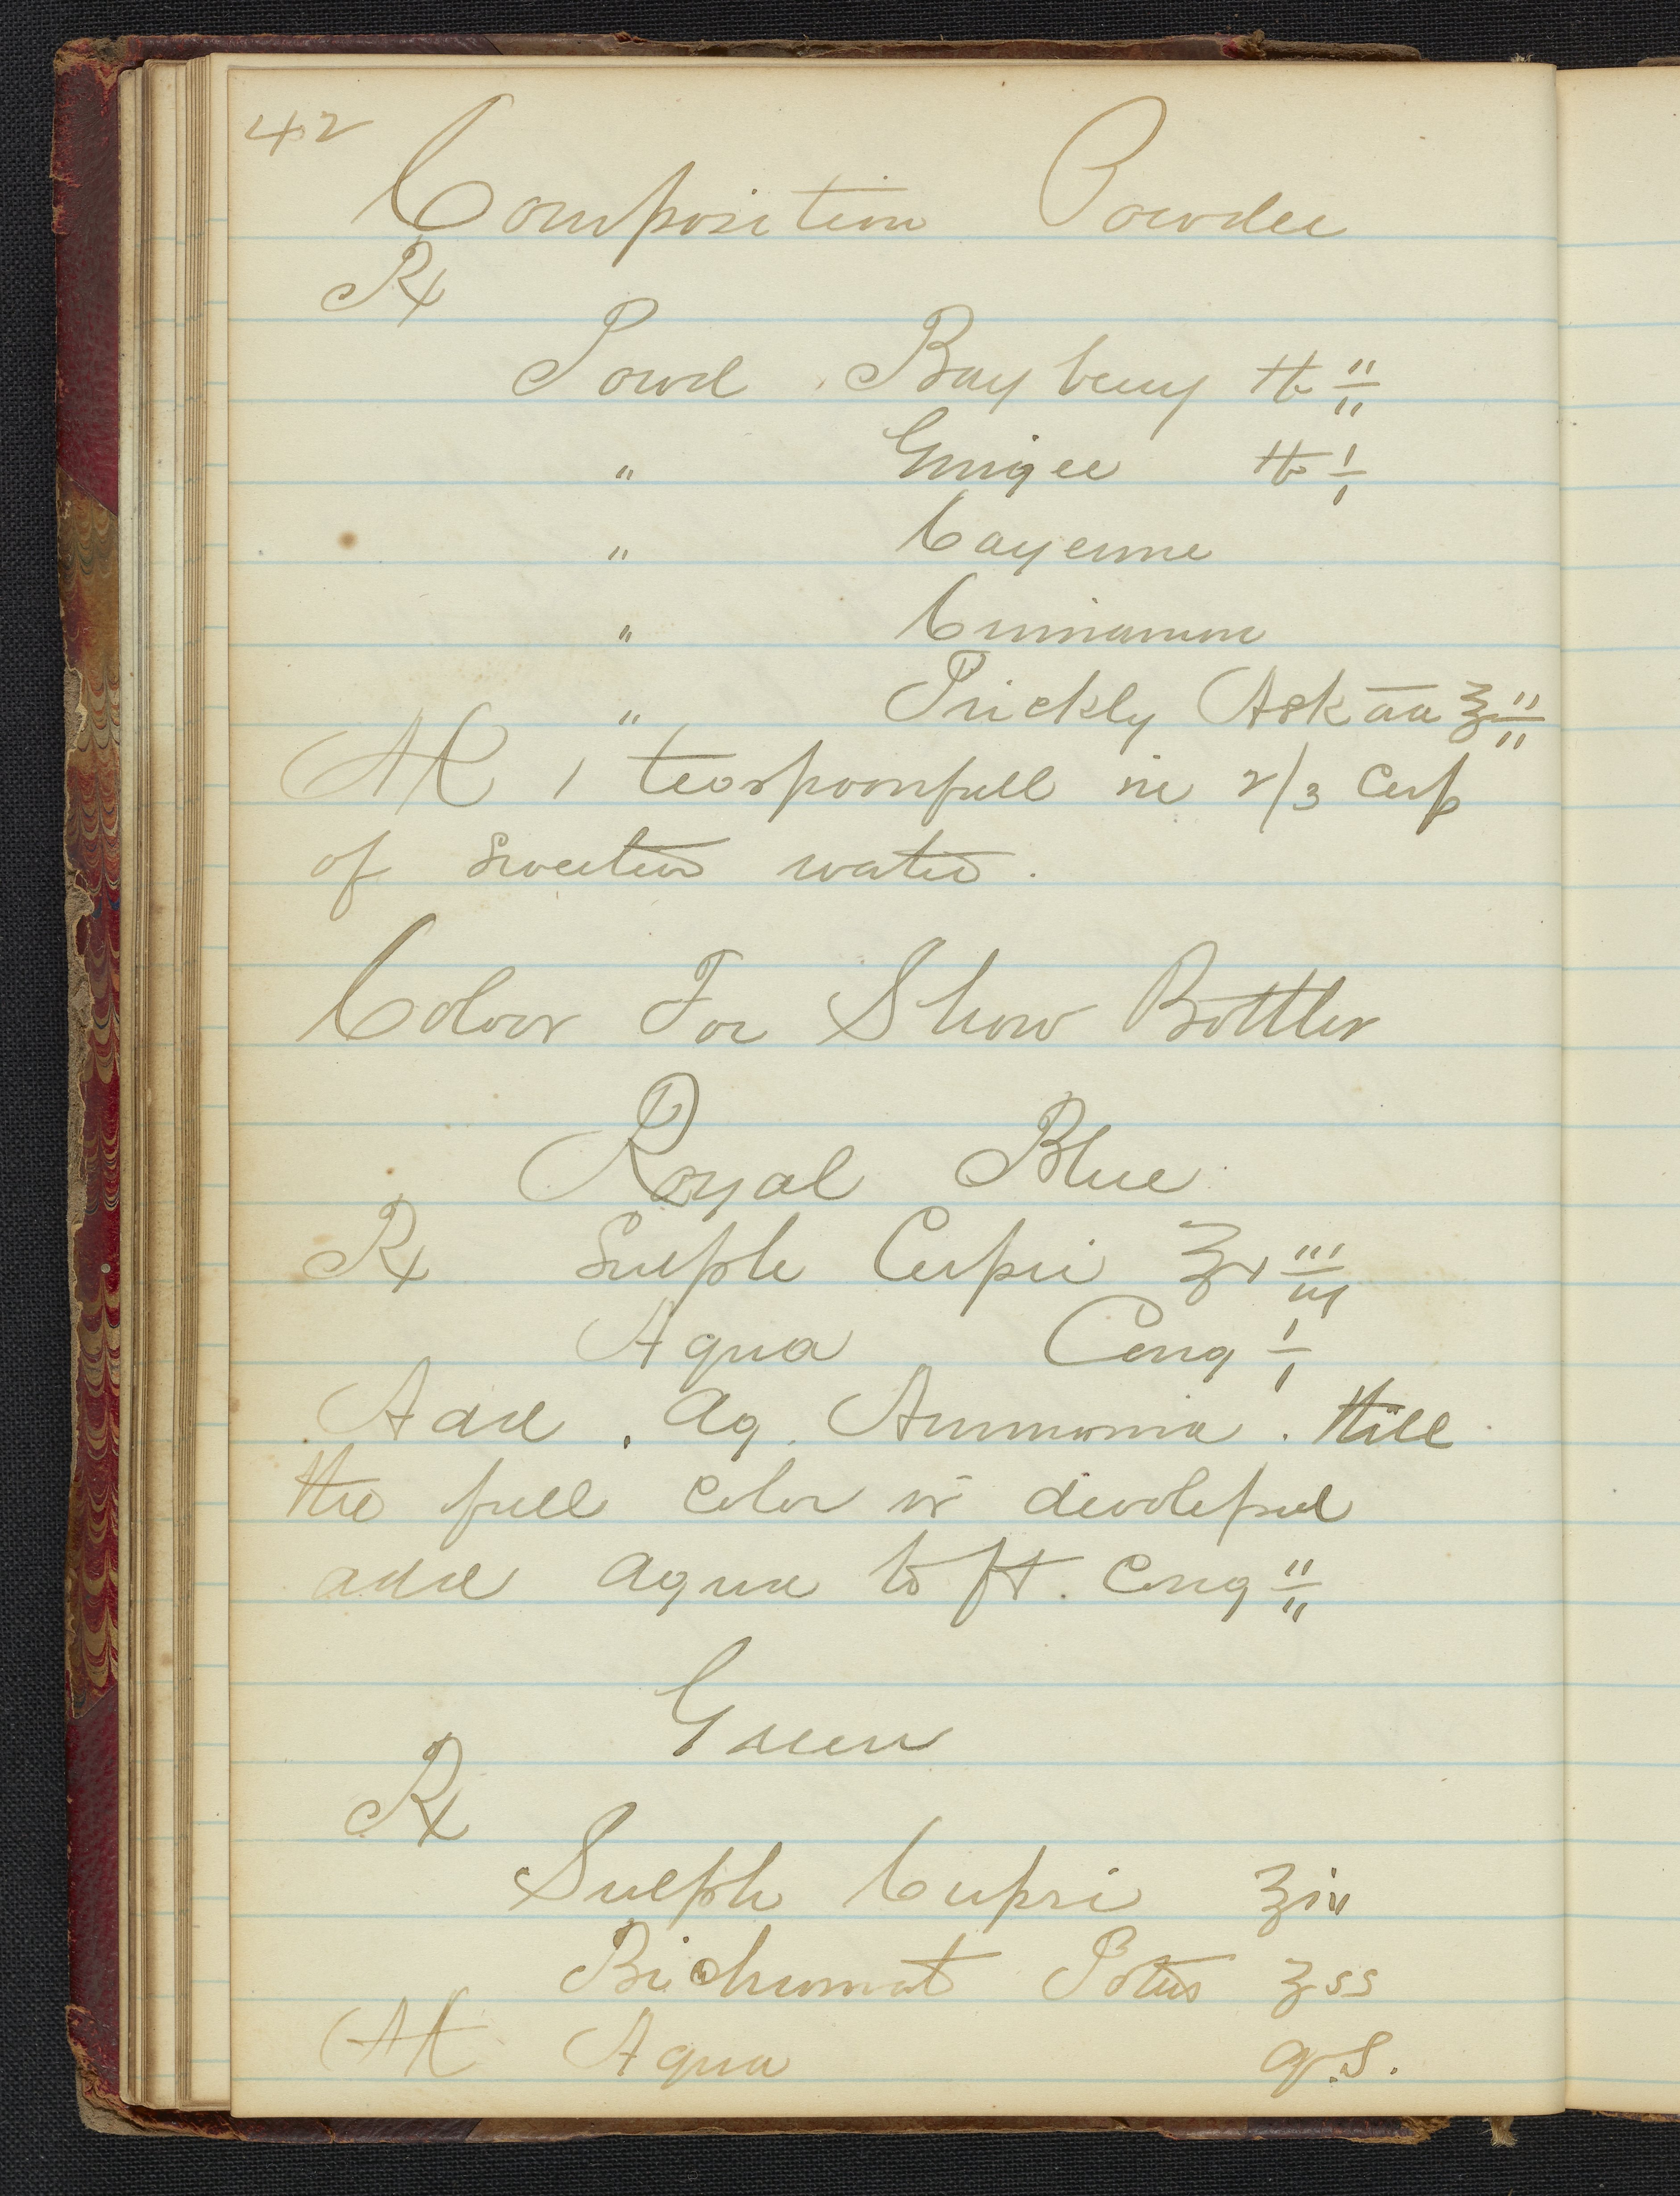 42
Composition Powder
℞
Powd Bayberry ℔ ii
" Ginger ℔ i
" Cayenne
" Cinnamon
" Prickly Ash āa ℥ ii
M 1 teaspoonfull in 2/3 Cup
of Sweeten water.
Color For Show Bottles
Royal Blue
℞ Sulph Cupri ℥ iii
Aqua Cong i
Add . Aq. Ammonia . till
the full color is devoleped
add Aqua to ft. Cong ii
Green
℞
Sulph Cupri
Bichromat Potas ss
M Aqua q.s.